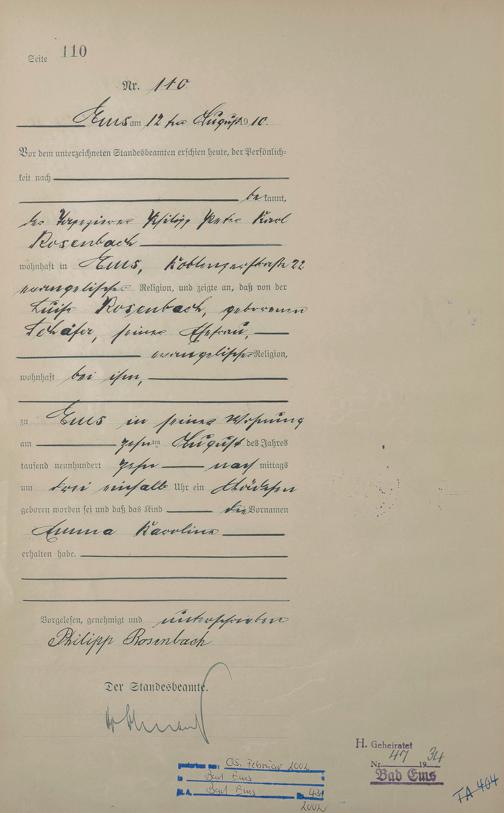 Seite 110
Nr. 110
Ems am 12ten August 1910.
Vor dem unterzeichneten Standesbeamten erschien heute, der Persönlich-
keit nach
bekannt,
der Tapezierer Philipp Peter Karl
Rosenbach
wohnhaft in Ems, Koblenzerstraße 22
evangelischer Religion, und zeigte an, daß von der
Luise Rosenbach, geborenen
Schäfer, seiner Ehefrau,
evangelischer Religion,
wohnhaft bei ihm,
zu Ems in seiner Wohnung
am zehnten August des Jahres
tausend neunhundert zehn nachmittags
um drei einhalb Uhr ein Mädchen
geboren worden sei und daß das Kind die Vornamen
Emma Karoline
erhalten habe.
Vorgelesen, genehmigt und unterschrieben
Philipp Rosenbach
Der Standesbeamte.
gestorben am: 05. Februar 2002
in Bad Ems
St. A. Bad Ems Nr.
2002
H. Geheiratet
Nr. 47 1934
Bad Ems
TA 464